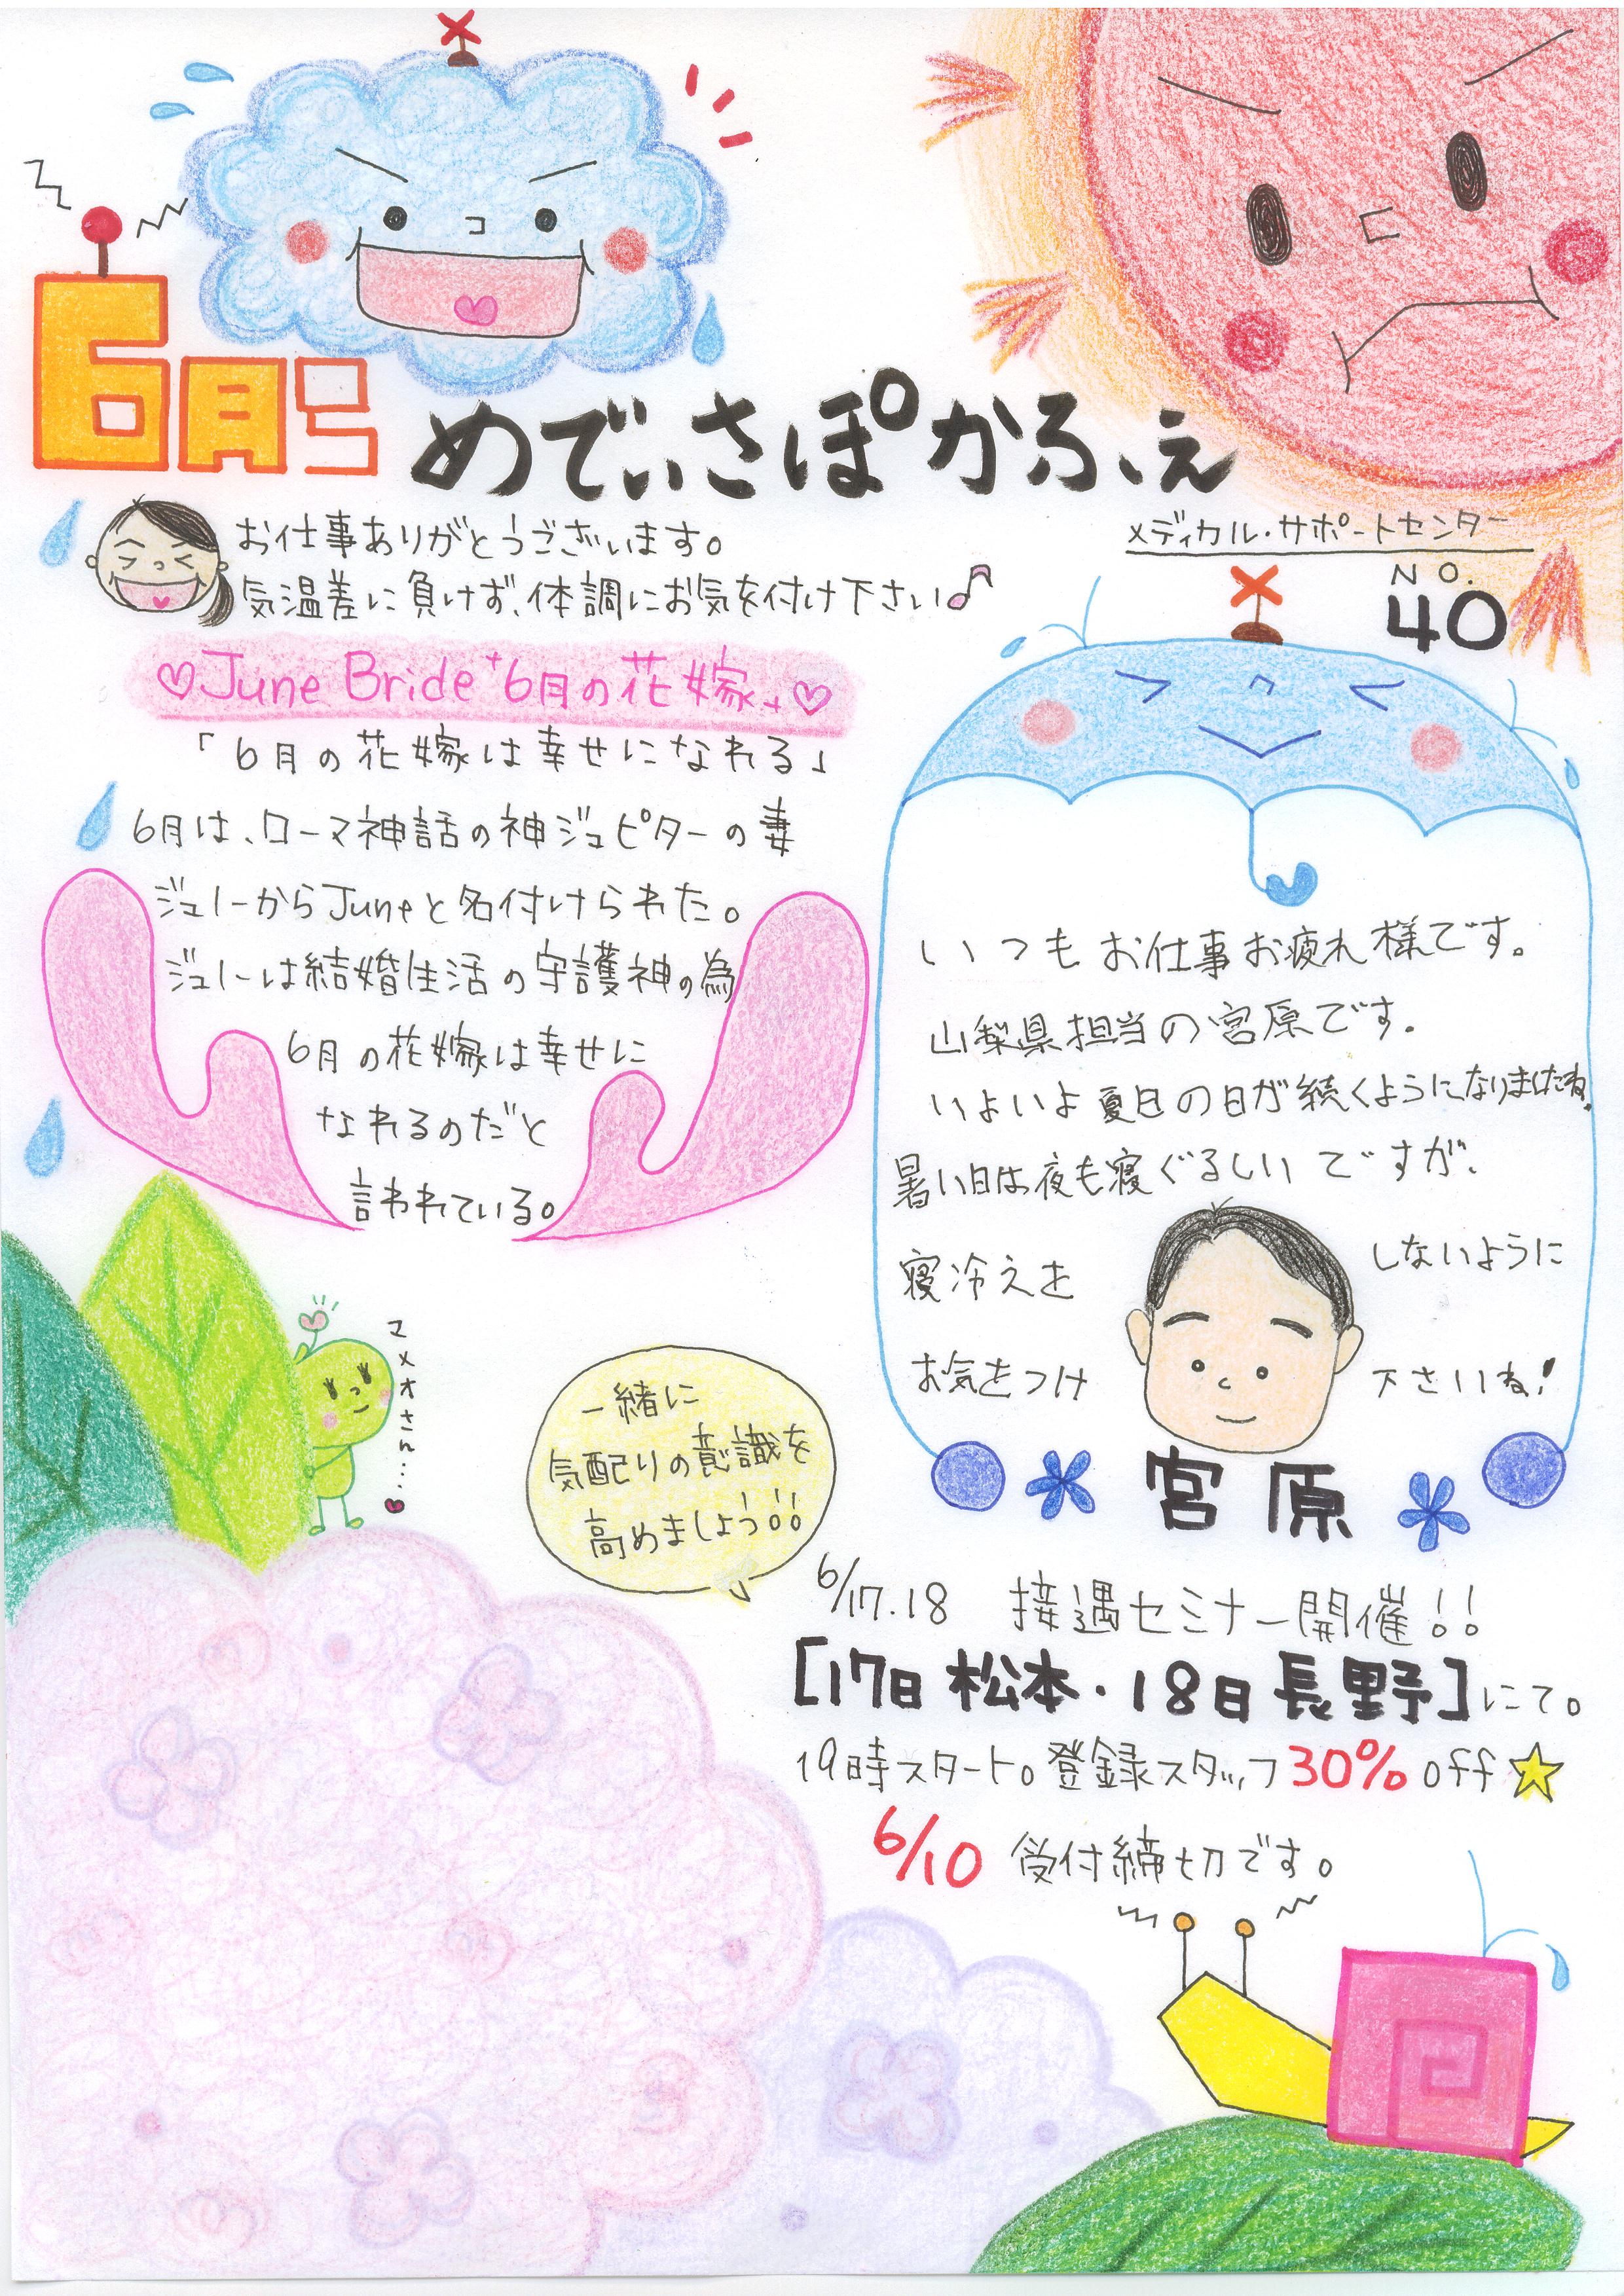 6月号
めでぃさぽかふぇ
お仕事ありがとうございます。
気温差に負けず、体調にお気を付け下さい♪
メディカル・サポートセンター
NO.
40
♡June Bride +6月の花嫁+♡
「6月の花嫁は幸せになれる」
6月は、ローマ神話の神ジュピターの妻
ジュノーからJuneと名付けられた。
ジュノーは結婚生活の守護神の為
6月の花嫁は幸せに
なれるのだと
言われている。
いつもお仕事お疲れ様です。
山梨県担当の宮原です。
いよいよ夏日の日が続くようになりましたね。
暑い日は夜も寝ぐるしいですが、
寝冷えを しないように
お気をつけ 下さいね!
宮原
マメオさん…♥
一緒に
気配りの意識を
高めましょう!!
6/17.18 接遇セミナー開催!!
[17日 松本・18日 長野]にて。
19時スタート。登録スタッフ30%off☆
6/10 受付締切です。